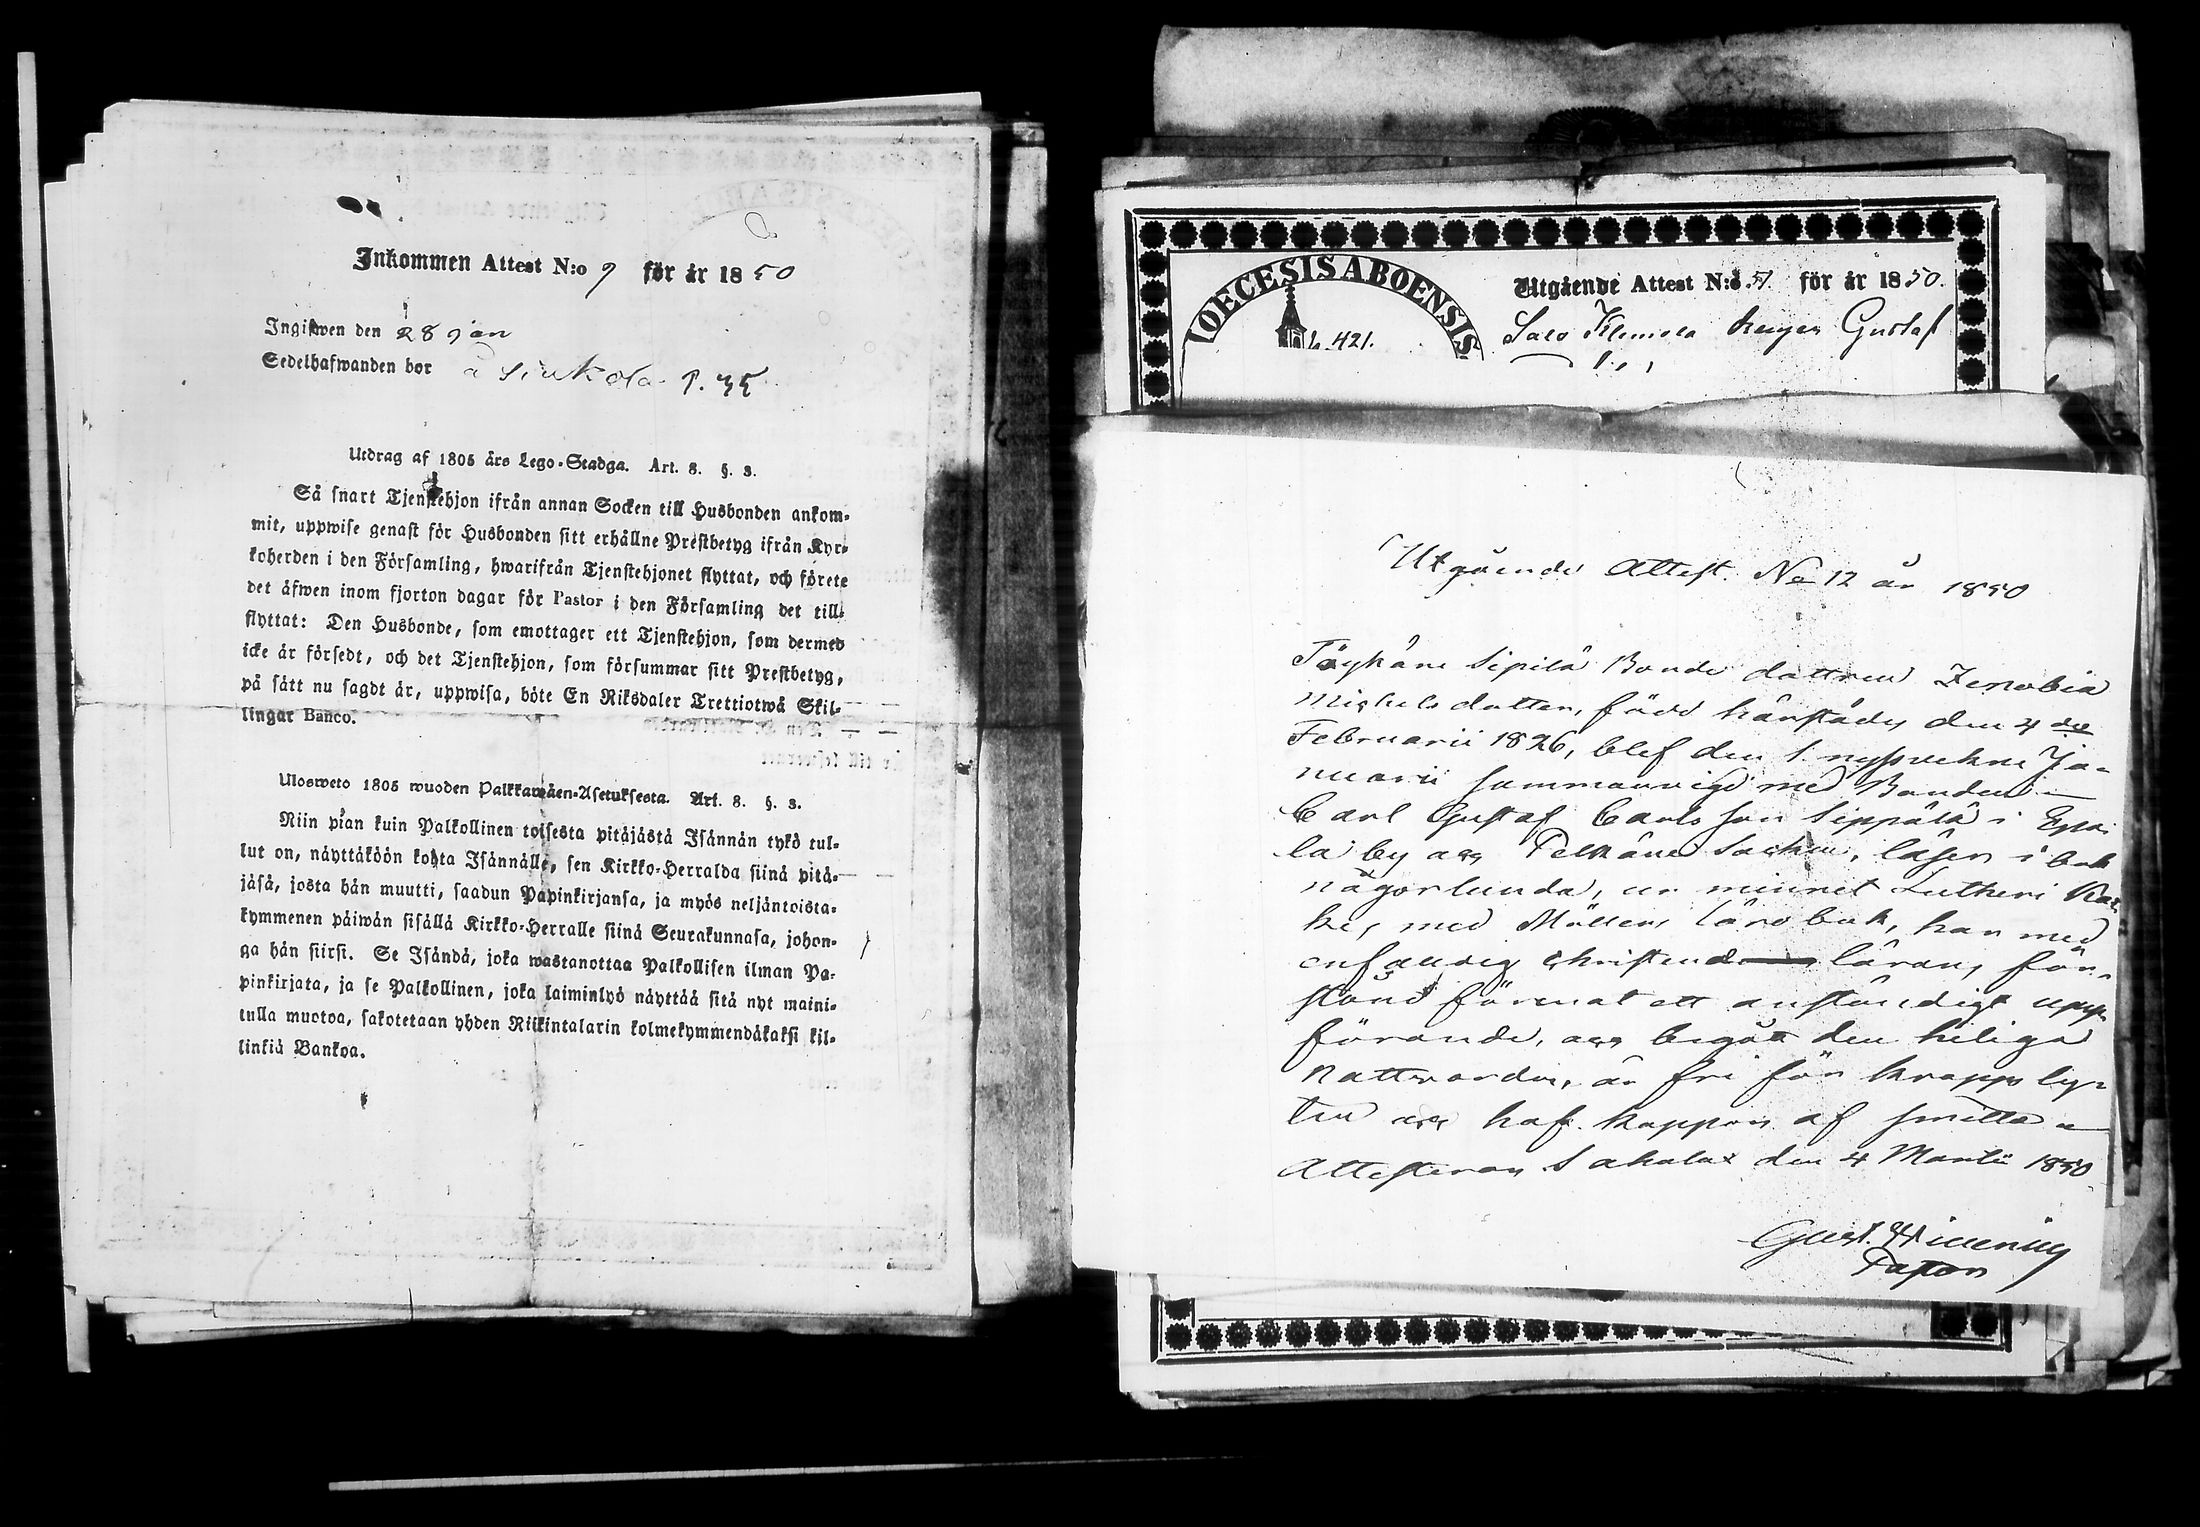 Inkommen Attest N:o 9 för år 1850
Ingifwen den 28 jan
Sedelhafwanden bor å Sinkola p. 35
Utdrag af 1805 års Lego-Stadga. Art. 8. §. 3.
Så snart Tjenstehjon ifrån annan Socken till Husbonden ankom-
mit, uppwise genast för Husbonden sitt erhållne Prestbetyg ifrån Kyr-
koherden i den Församling, hwarifrån Tjenstehjonet flyttat, och förete
det äfwen inom fjorton dagar för Pastor i den Församling det till-
flyttat: Den Husbonde, som emottager ett Tjenstehjon, som dermed
icke är försedt, och det Tjenstehjon, som försummar sitt Prestbetyg,
på sätt nu sagdt är, uppwisa, böte En Riksdaler Trettiotwå Skil-
lingar Banco.
Ulosweto 1805 wuoden Palkkawäen-Asetuksesta. Art. 8. §. 3.
Niin pian kuin Palkollinen toisesta pitäjästä Isännän tykö tul-
lut on, näyttäköön kohta Isännälle, sen Kirkko-Herralda siinä pitä-
jäsä, josta hän muutti, saadun Papinkirjansa, ja myös neljäntoista-
kymmenen päiwän sisällä Kirkko-Herralle siinä Seurakunnasa, johon-
ga hän siirsi. Se Isändä, joka wastanottaa Palkollisen ilman Pa-
pinkirjata, ja se Palkollinen, joka laiminlyö näyttää sitä nyt maini-
tulla muotoa, sakotetaan yhden Riikintalarin kolmekymmendäkaksi kil-
linkiä Bankoa.
IOECESIS ABOENSIS
421.
Utgående Attest N:o 51 för år 1850.
Salo Klemola drengen Gustaf
Utgående Attest. No 12 år 1850
Töykäne Sipilä Bonde dottren Zenobia
Michelsdotter, född härstädes den 4de
Februarii 1826, blef den 1 nyssvekne Ja-
nuarii sammanvigd med Bonden
Carl Gustaf Carlsson Sippälä i Epaa-
la by och Pelkäne Socken, läser i bok
någorlunda, ur minnet Lutheri Kat-
kes med Möllers lärobok, har med
enfaldig christendoms lärans för-
stånd förenat ett anständigt upp-
förande, och begått den heliga
Nattvarden, är fri för kropps ly-
ten och haft koppor af smitta
Attesteras Sahalax den 4 Martii 1850.
Gust. Winenius
Pastor